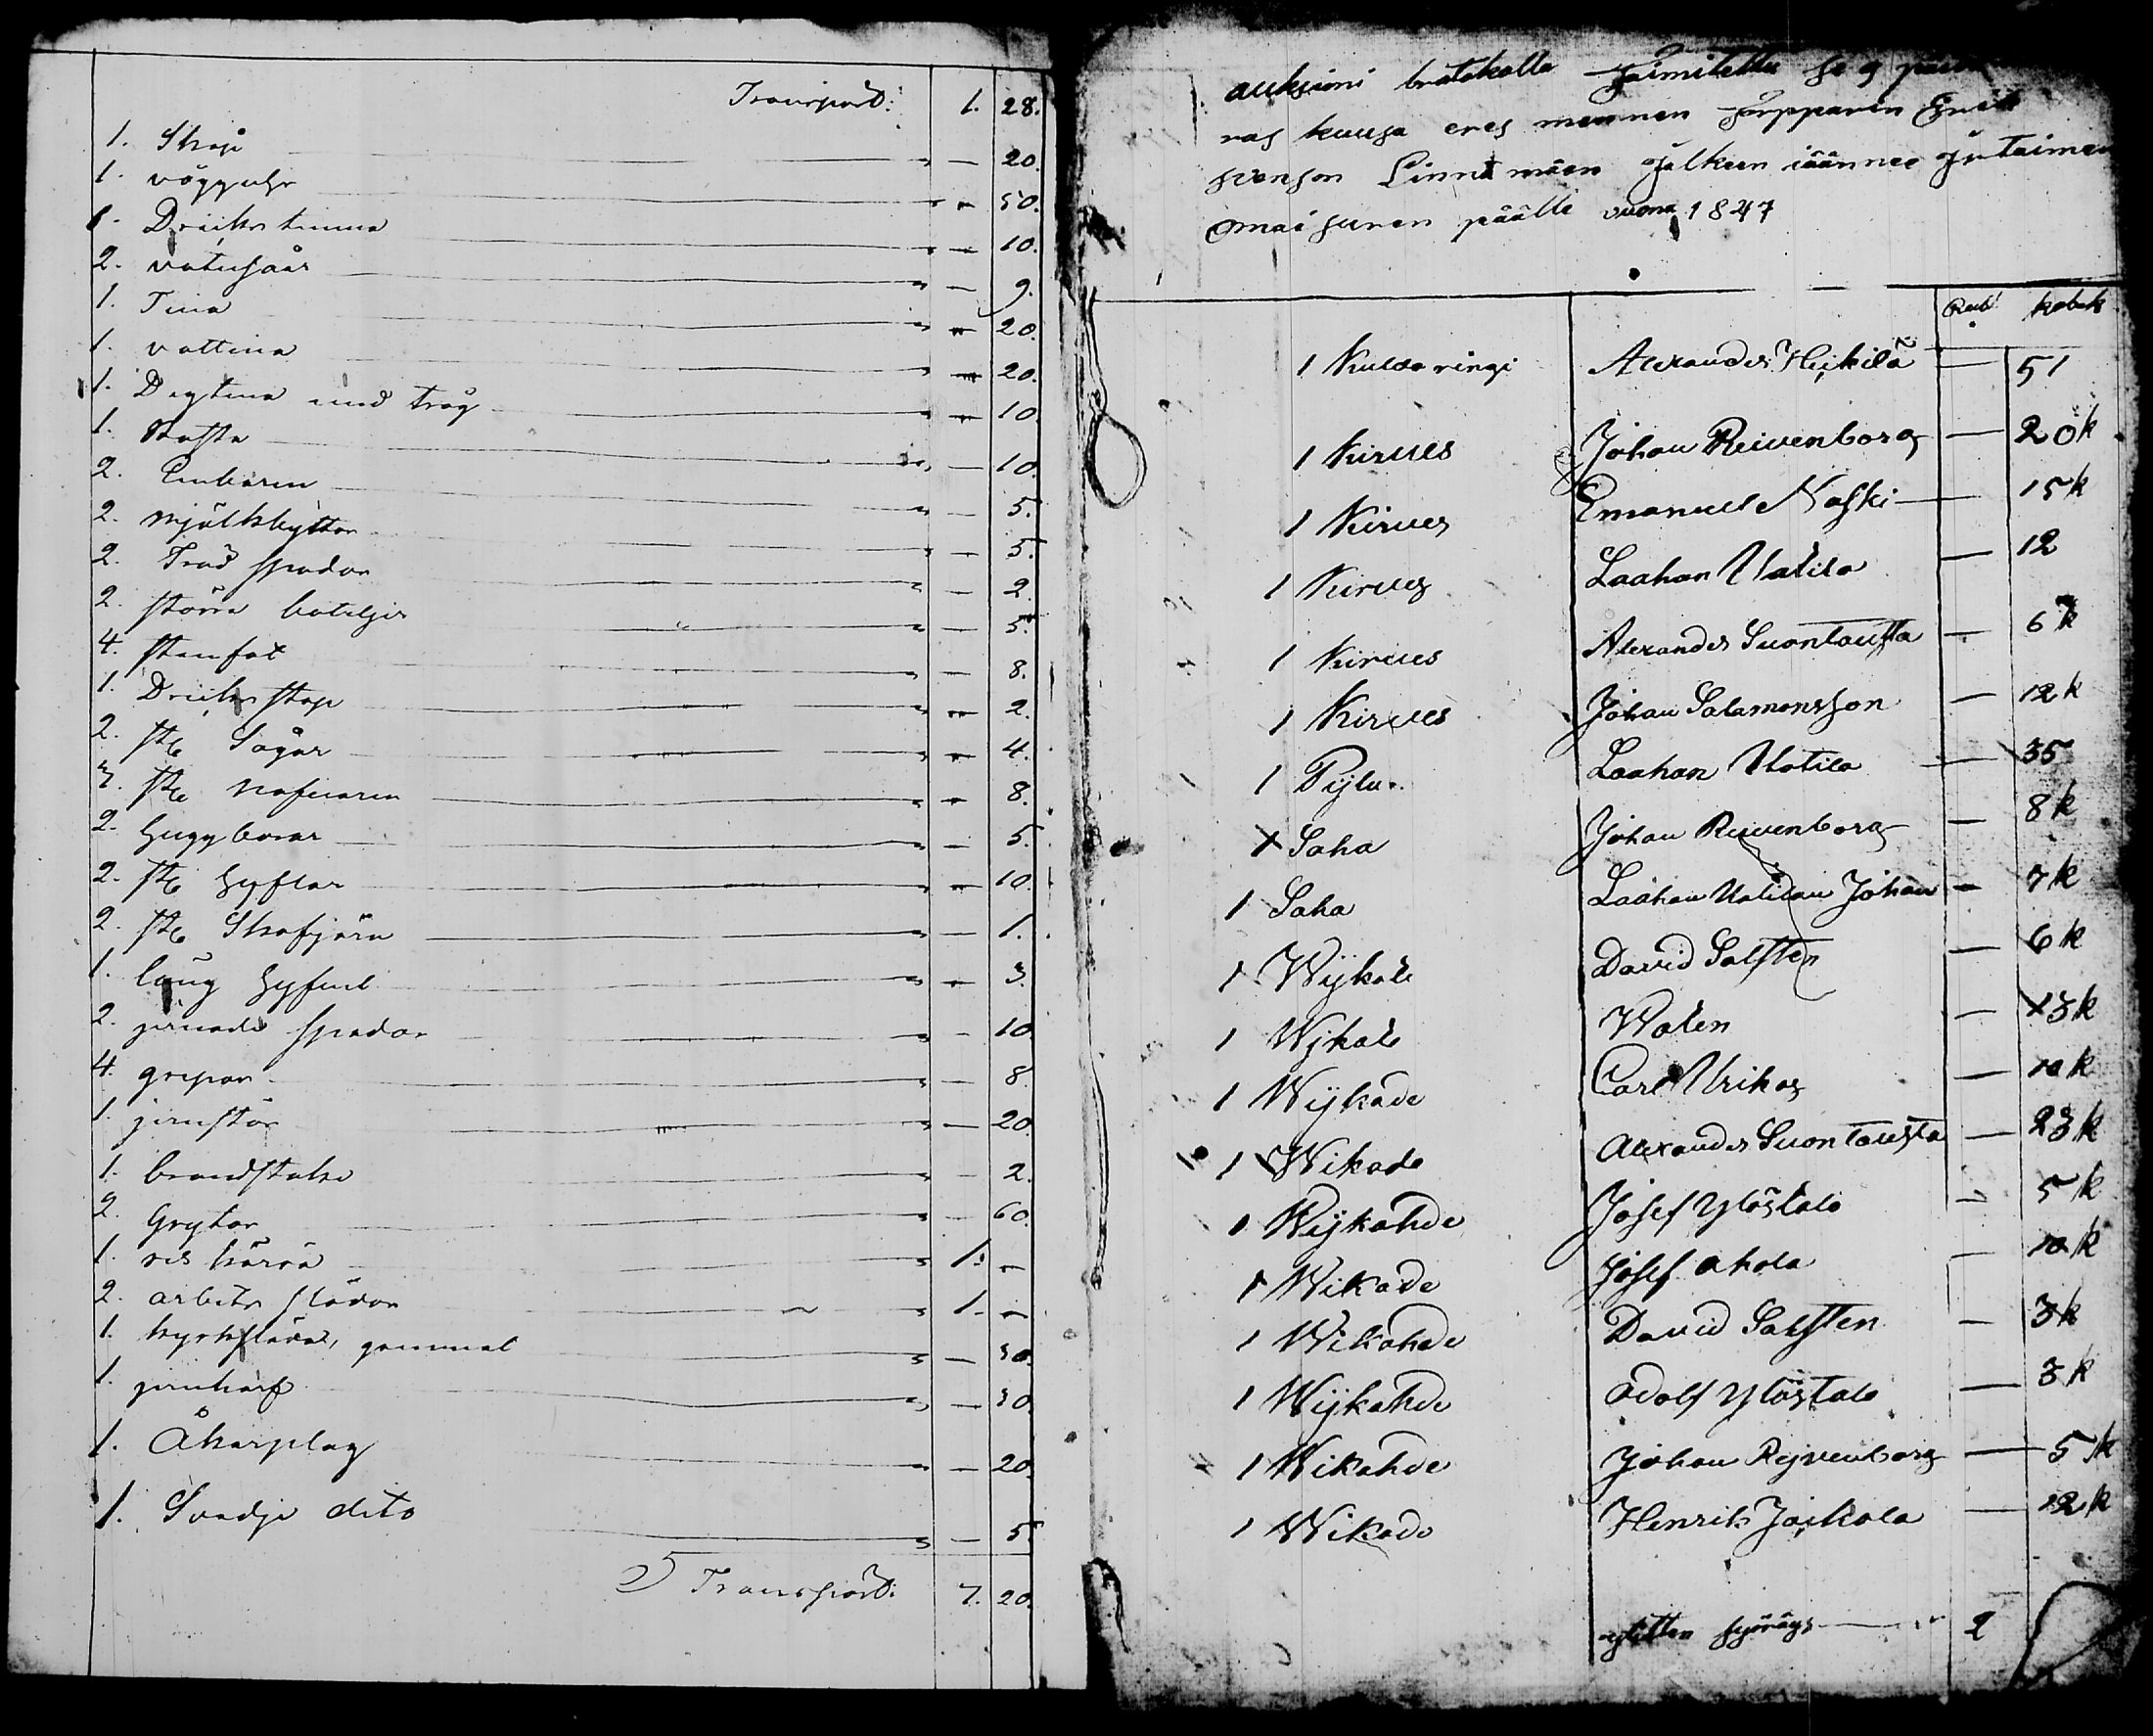 Transport: 1. 28.
1. Skåp " — 20.
1. vägguhr " — 50.
1. Dricks tunna " — 10.
2. vatusåar " — 9.
1. Tina " — 20.
1. vattina " — 20.
1. Degtina med tråg " — 10.
1. " — 10.
2. Embaren " — 5.
2. mjölkbyttor " — 5.
2. Träd spadar " — 2.
2. större buteljer " — 5.
4. stenfat " — 8.
1. Dricks stop " — 2.
2. stk Sågar " — 4.
3. stk nafvaren " — 8.
2. huggborar " — 5.
2. stk hyflar " — 10.
2. stk Skafjärn " — 1.
1. lång hyfvel " — 3.
2. jernade spadar " — 10.
4. grepar " — 8.
1. jernstör " — 20.
1. brandstake " — 2.
2. Grytor " — 60.
1. res kärra " 1. —
2. arbets slädar " 1. —
1. kyrksläde, gammal " — 30.
1. jernharf " — 30.
1. Åkerplog " — 20.
1. Svedje dito " — 5.
Transport: 7. 20.
auksioni brotokolla Toimitettu se 9
ras kuusa eres mennen Torpparin Erik
svenson Linnamäen jälkeen jäännee irtaimen
omaisuuen päälle vuona 1847
Rubl kobek
1 Kulda ringi Alexander Heikilä — 51
1 Kirves Johan Reivenborg — 20k
1 Kirves Emanuel Naski — 15k
1 Kirves Laahan Uatila — 12
1 Kirves Alexander Suontausta — 67k
1 Kirves Johan Salamonsson — 12k
1 Pijlu Laahan Uatila — 35
1 Saha Johan Reivenborg — 8k
1 Saha Laahan Uatilan Johan — 7k
1 Wijkate David Salsten — 6k
1 Wijkate Walen — 13k
1 Wijkade Carl Urikas — 10k
1 Wikade Alexander Suontausta — 23k
1 Wijkahde Josef Yløstalo — 5k
1 Wikade Josef ahola — 10k
1 Wikahde David Salsten — 3k
1 Wijkahde adolf Ylöstalo — 3k
1 Wikahde Johan Rejvenborg — 5k
1 Wikade Henrik Jaikola — 12k
2